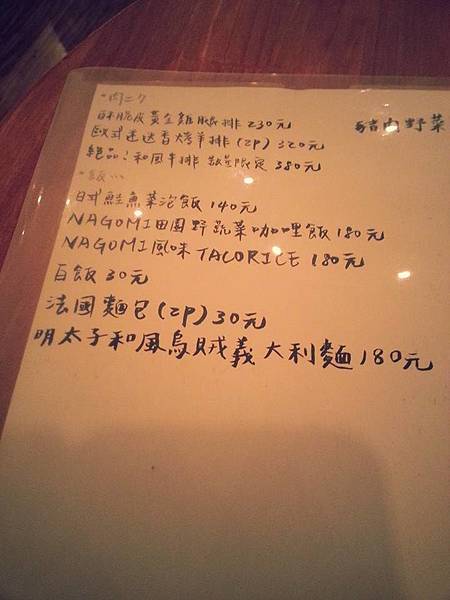 ・肉ニク
酥脆皮黃金雞腿排 230元
歐式迷迭香烤羊排 (2P) 320元
絕品！和風牛排 數量限定 380元
・飯…
日式鮭魚茶泡飯 140元
NAGOMI田園野蔬菜咖哩飯 180元
NAGOMI風味 TACORICE 180元
白飯 30元
法國麵包 (2P) 30元
明太子和風烏賊義大利麵 180元
豬肉野菜